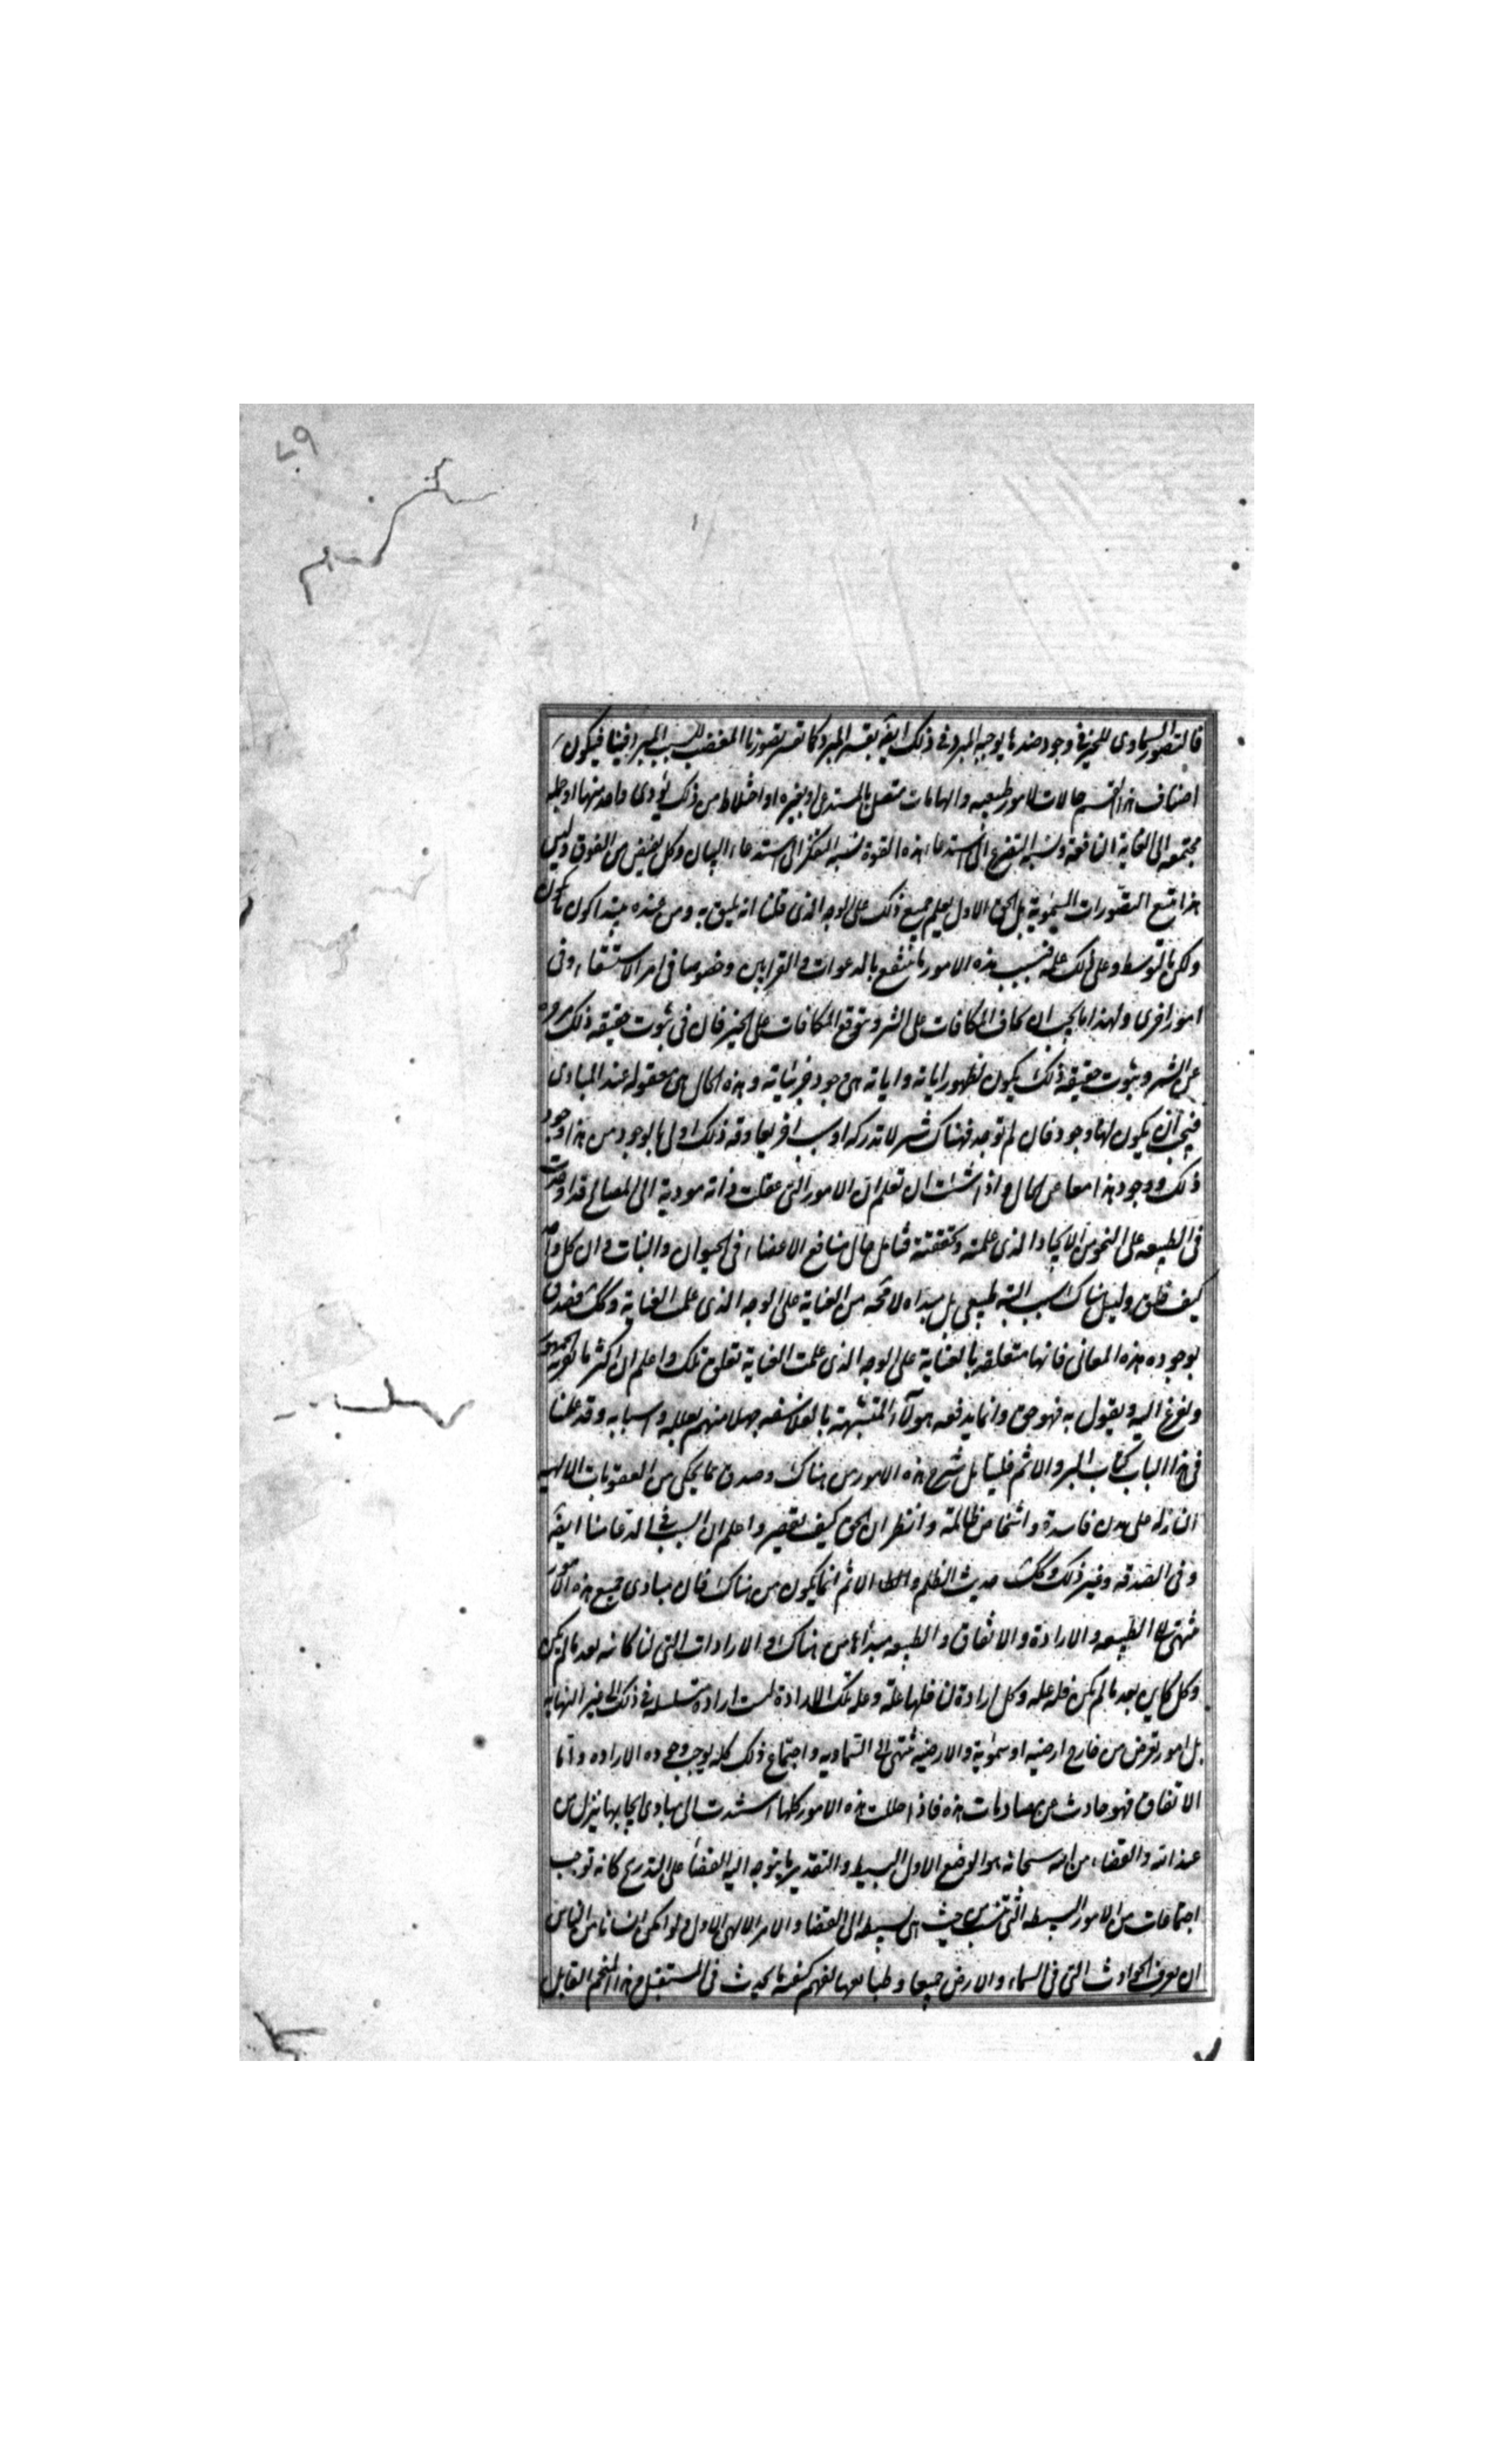 فالتصور السماوي للخير في وجود ضد ما يوجبه المبرد في ذلك ايضا يقسر المبرد كما يقسر تصورنا المغضب السبب المبرد فينا فيكون
اصناف هذا القسم حالات لامور طبيعيه والهامات متصل بالمستدعي او بغيره او اختلاط من ذلك يؤدي واحد منها او جمله
مجتمعه الى الغاية النافعة ونسبة التضرع الى استدعاء هذه القوة نسبة التفكر الى استدعاء البيان وكل يفيض من الفوق وليس
هذا تتبع التصورات السمويه بل الحق الاول يعلم جميع ذلك على الوجه الذي قلنا انه يليق به ومن عنده يبتدا كون ما يكون
ولكن بالتوسط وعلى ذلك علمه فبسبب هذه الامور ما ينتفع بالدعوات والقرابين وخصوصا في امر الاستسقاء وفي
امور اخرى ولهذا ما يجب ان يخاف المكافات على الشر ويتوقع المكافات على الخير فان في ثبوت حقيقه ذلك مزجره
عن الشر وثبوت حقيقه ذلك يكون لظهور اياته واياته هي وجود جزئياته وهذه الحال هي معقوله عند المبادي
فيجب ان يكون لها وجود فان لم توجد فهناك شر لا ندركه او سبب اخر يعاوقه ذلك اولى بالوجود من هذا ووجود
ذلك ووجود هذا معا من المحال واذا شئت ان تعلم ان الامور التي عقلت نافعة مودية الى المصالح قد اوجدت
في الطبيعه على النحو من الايجاد الذي علمته وتحققته فتامل حال منافع الاعضاء في الحيوان والنبات وان كل واحد
كيف خلق وليس هناك سبب البته طبيعي بل مبداه لا محه من العناية على الوجه الذي علمت العناية وكك فصدق
بوجود هذه المعاني فانها متعلقه بالعناية على الوجه الذي علمت العناية تعلق تلك واعلم ان اكثر ما يقر به الجمهور
ويفزع اليه ويقول به فهو حق وانما يدفعه هولاء المتشبهة بالفلاسفه جهلا منهم بعلله واسبابه وقد عملنا
في هذا الباب كتاب البر والاثم فليتامل شرح هذه الامور من هناك وصدق بما يحكى من العقوبات الالهيه
النازله على مدن فاسدة واشخاص ظالمة وانظر ان الحق كيف ينصر واعلم ان السبب في الدعا منا ايضا
وفي الصدقه وغير ذلك وكك حدوث الظلم والاثم انما يكون من هناك فان مبادي جميع هذه الامور
تنتهي الى الطبيعه والارادة والاتفاق والطبيعه مبداها من هناك والارادات التي لنا كائنه بعد ما لم تكن
وكل كاين بعد ما لم يكن فله عله وكل ارادة لنا فلها علة وعله تلك الارادة ليست ارادة متسلسله في ذلك الى غير النهايه
بل امور تعرض من خارج ارضيه او سمويه والارضيه تنتهي الى السماويه واجتماع ذلك كله يوجب وجود الاراده واما
الاتفاق فهو حادث من مصادمات هذه فاذا حللت هذه الامور كلها استندت الى مبادي ايجابها ينزل من
عند الله والقضاء من الله سبحانه هو الوضع الاول البسيط والتقدير ما يتوجه اليه القضاء على التدريج كانه توجب
اجتماعات من الامور البسيطه التي تنسب من حيث هي بسيطه الى القضا والامر الالهي الاول ولو امكن انسانا من الناس
ان يعرف الحوادث التي في السماء والارض جميعا وطبائعها لفهم كيفيه ما يحدث في المستقبل وهذا المنجم القايل